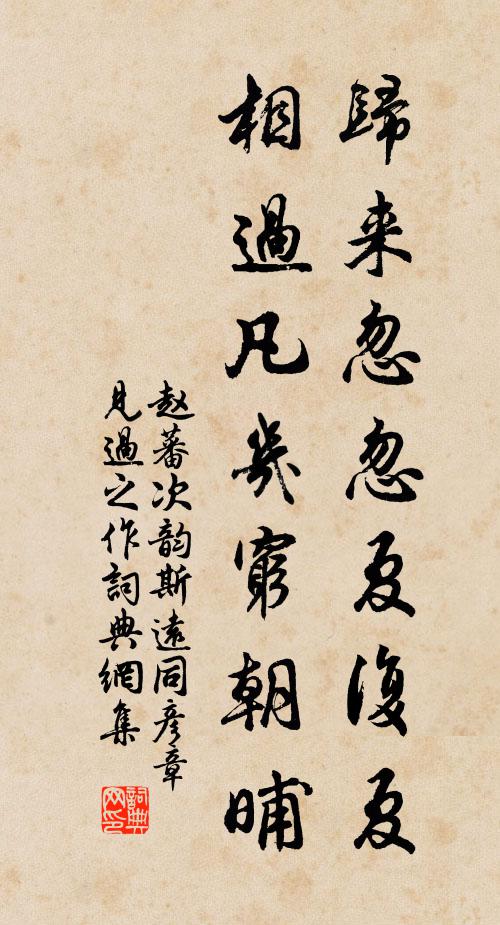 歸来忽忽夏復夏
相過凡幾窮朝晡
赵蕃次韵斯遠同彦章
見過之作詞典網集
詞典網印